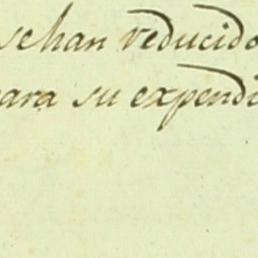 se han reducido
para su expendi